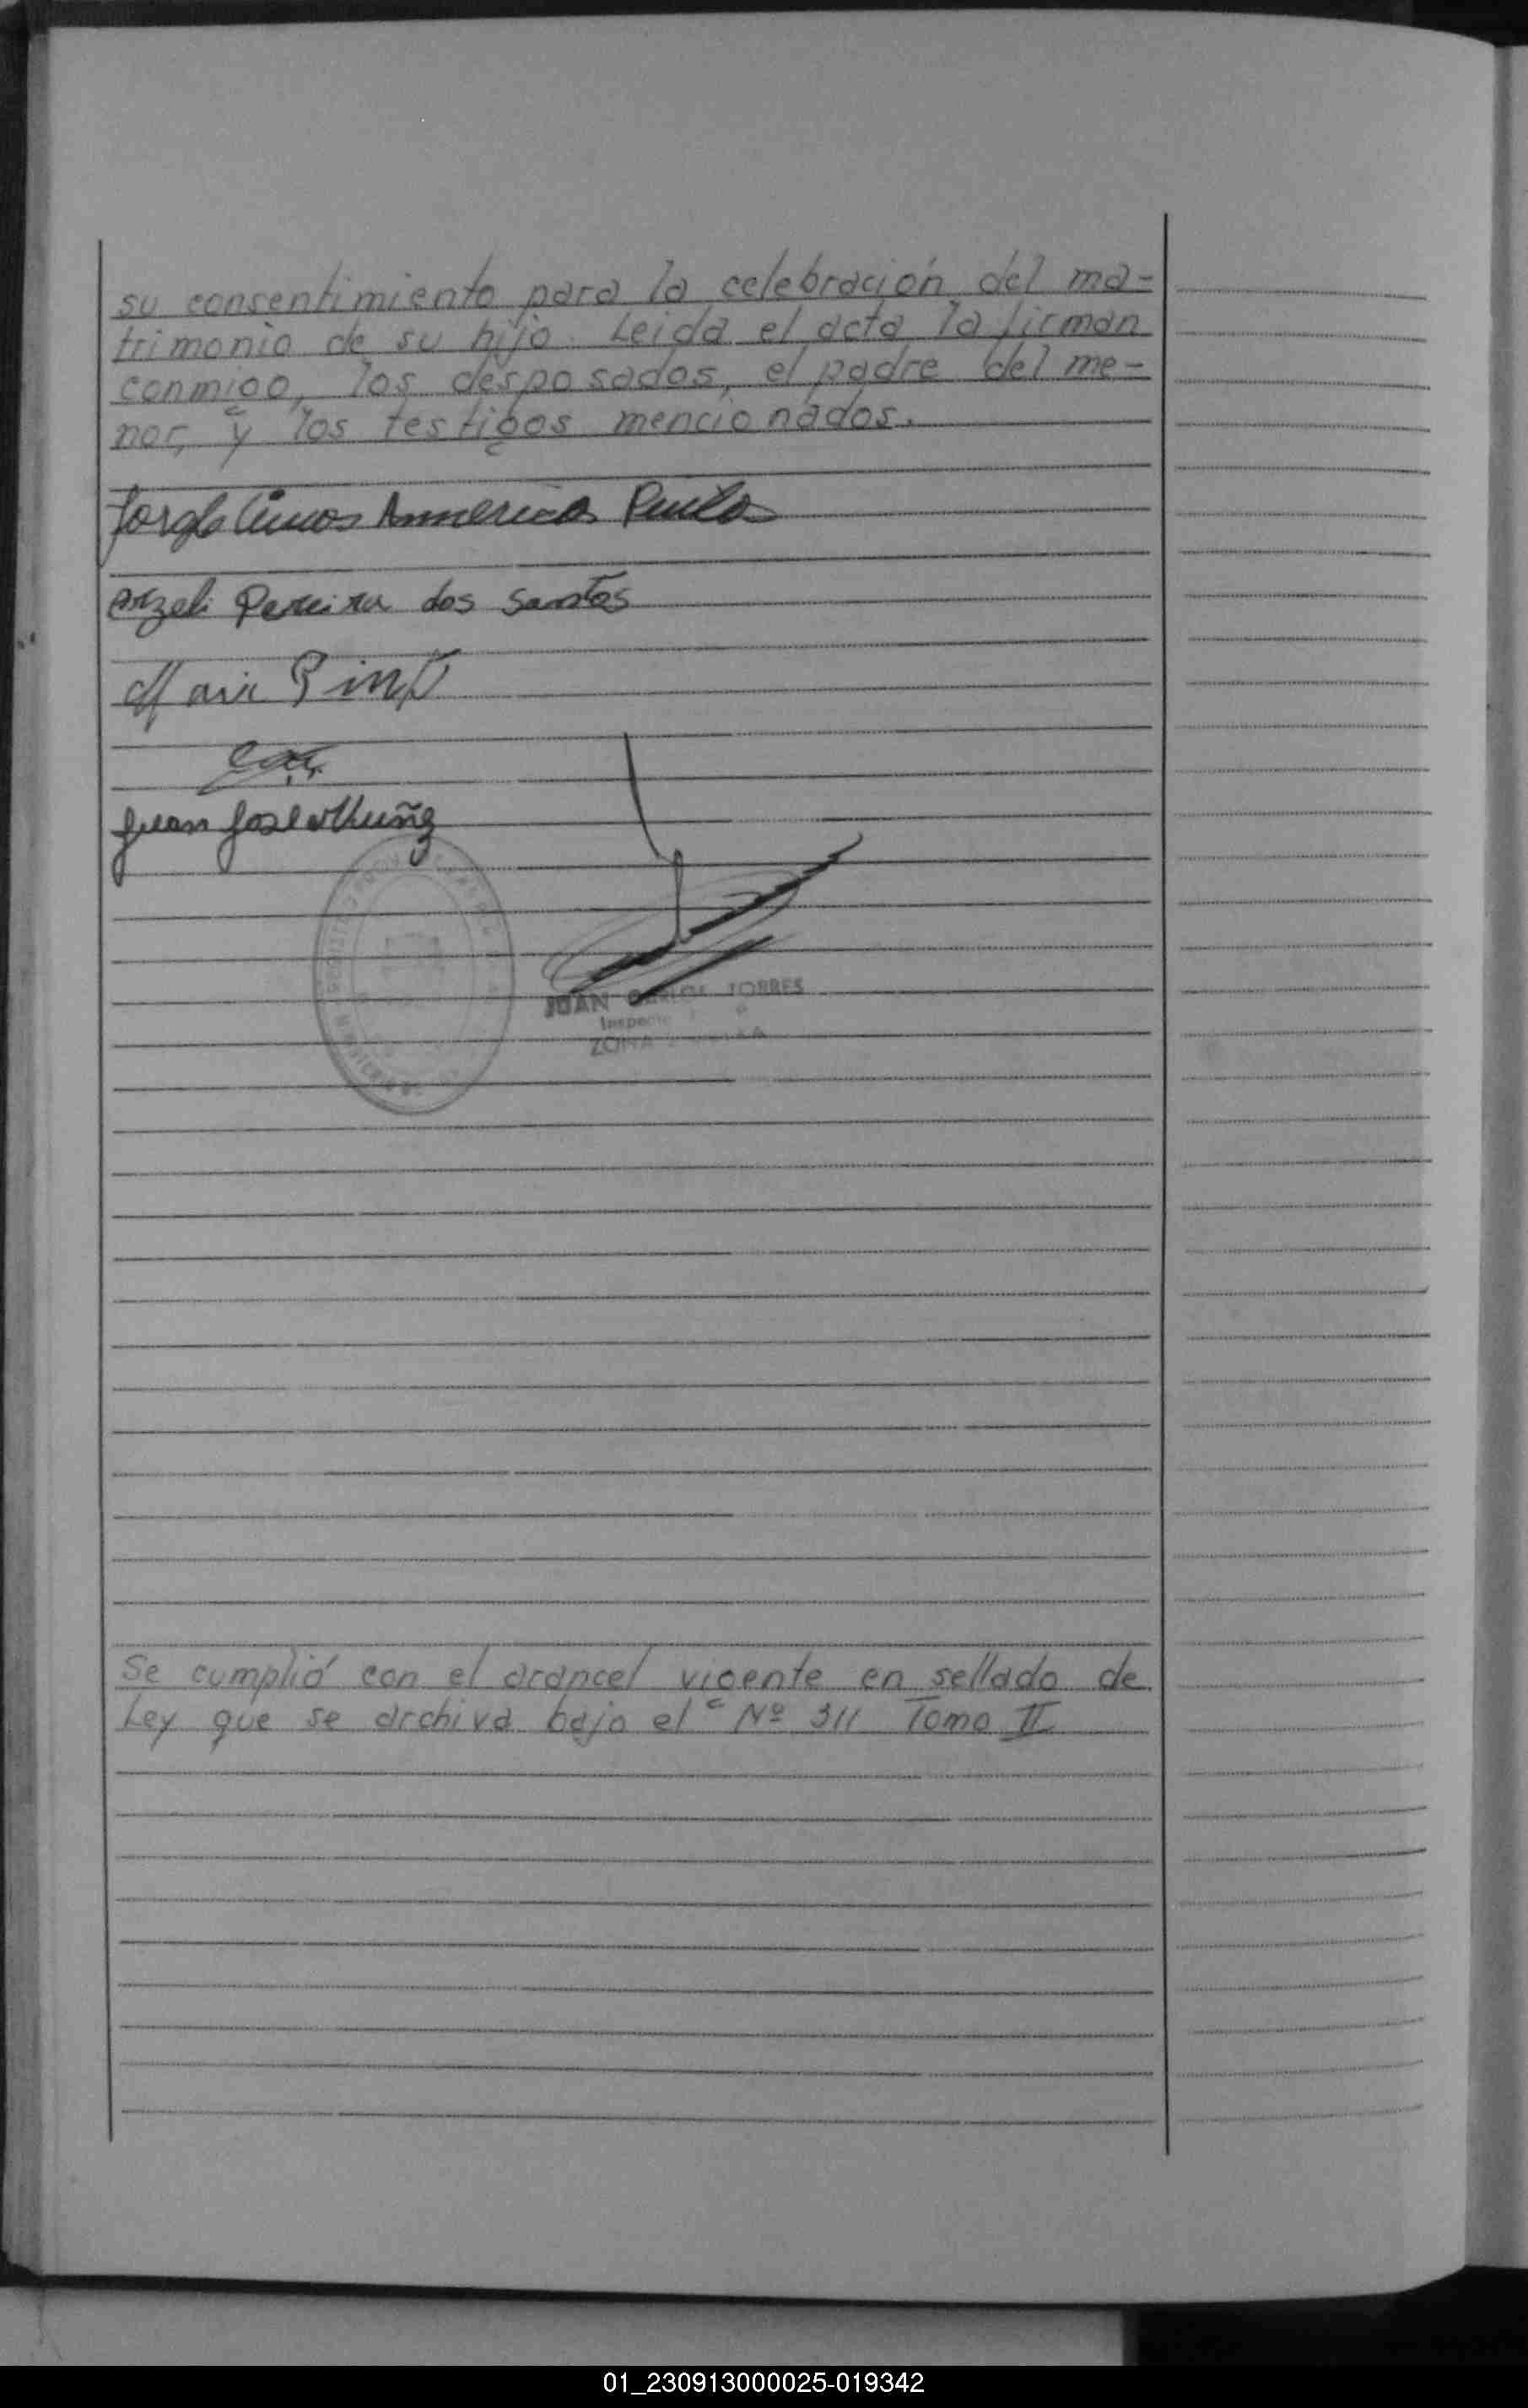 su consentimiento para la celebración del ma-
trimonio de su hijo. Leida el acta la firman
conmigo, los desposados, el padre del me-
nor, y los testigos mencionados.
Arzeli Pereira dos Santos
Pinto
Juan Jose Muñiz
JUAN CARLOS TORRES
Inspector
ZONA
Se cumplió con el arancel vigente en sellado de
Ley que se archiva bajo el Nº 311 Tomo II
01_230913000025-019342